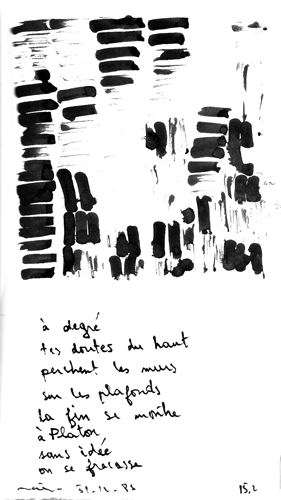 à degré
tes doutes du haut
perchent les murs
sur les plafonds
la fin se montre
à Platon
sans idée
on se fracasse
31-12-86
15,2